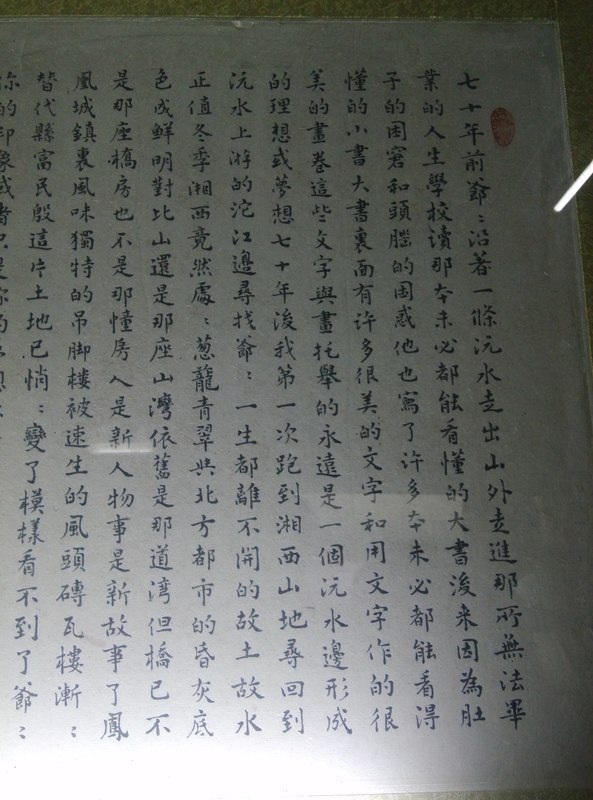 七十年前爺：沿著一條沅水走出山外走進那所無法畢
業的人生學校讀那本未必都能看懂的大書後来因為肚
子的困窘和頭腦的困惑他也寫了许多本未必都能看得
懂的小書大書裏面有许多很美的文字和用文字作的很
美的畫卷這些文字與畫托舉的永遠是一個沅水邊形成
的理想或夢想七十年後我第一次跑到湘西山地尋回到
沅水上游的沱江邊尋找爺：一生都離不開的故土故水
正值冬季湘西竟然處：葱蘢青翠與北方都市的昏灰底
色成鮮明對比山還是那座山灣依舊是那道湾但橋已不
是那座橋房也不是那幢房人是新人物事是新故事了鳳
凰城鎮裏風味獨特的吊脚楼被速生的風頭磚瓦樓漸：
替代縣富民殷這片土地已悄：變了模樣看不到了爺：
你的印象或者只是你的